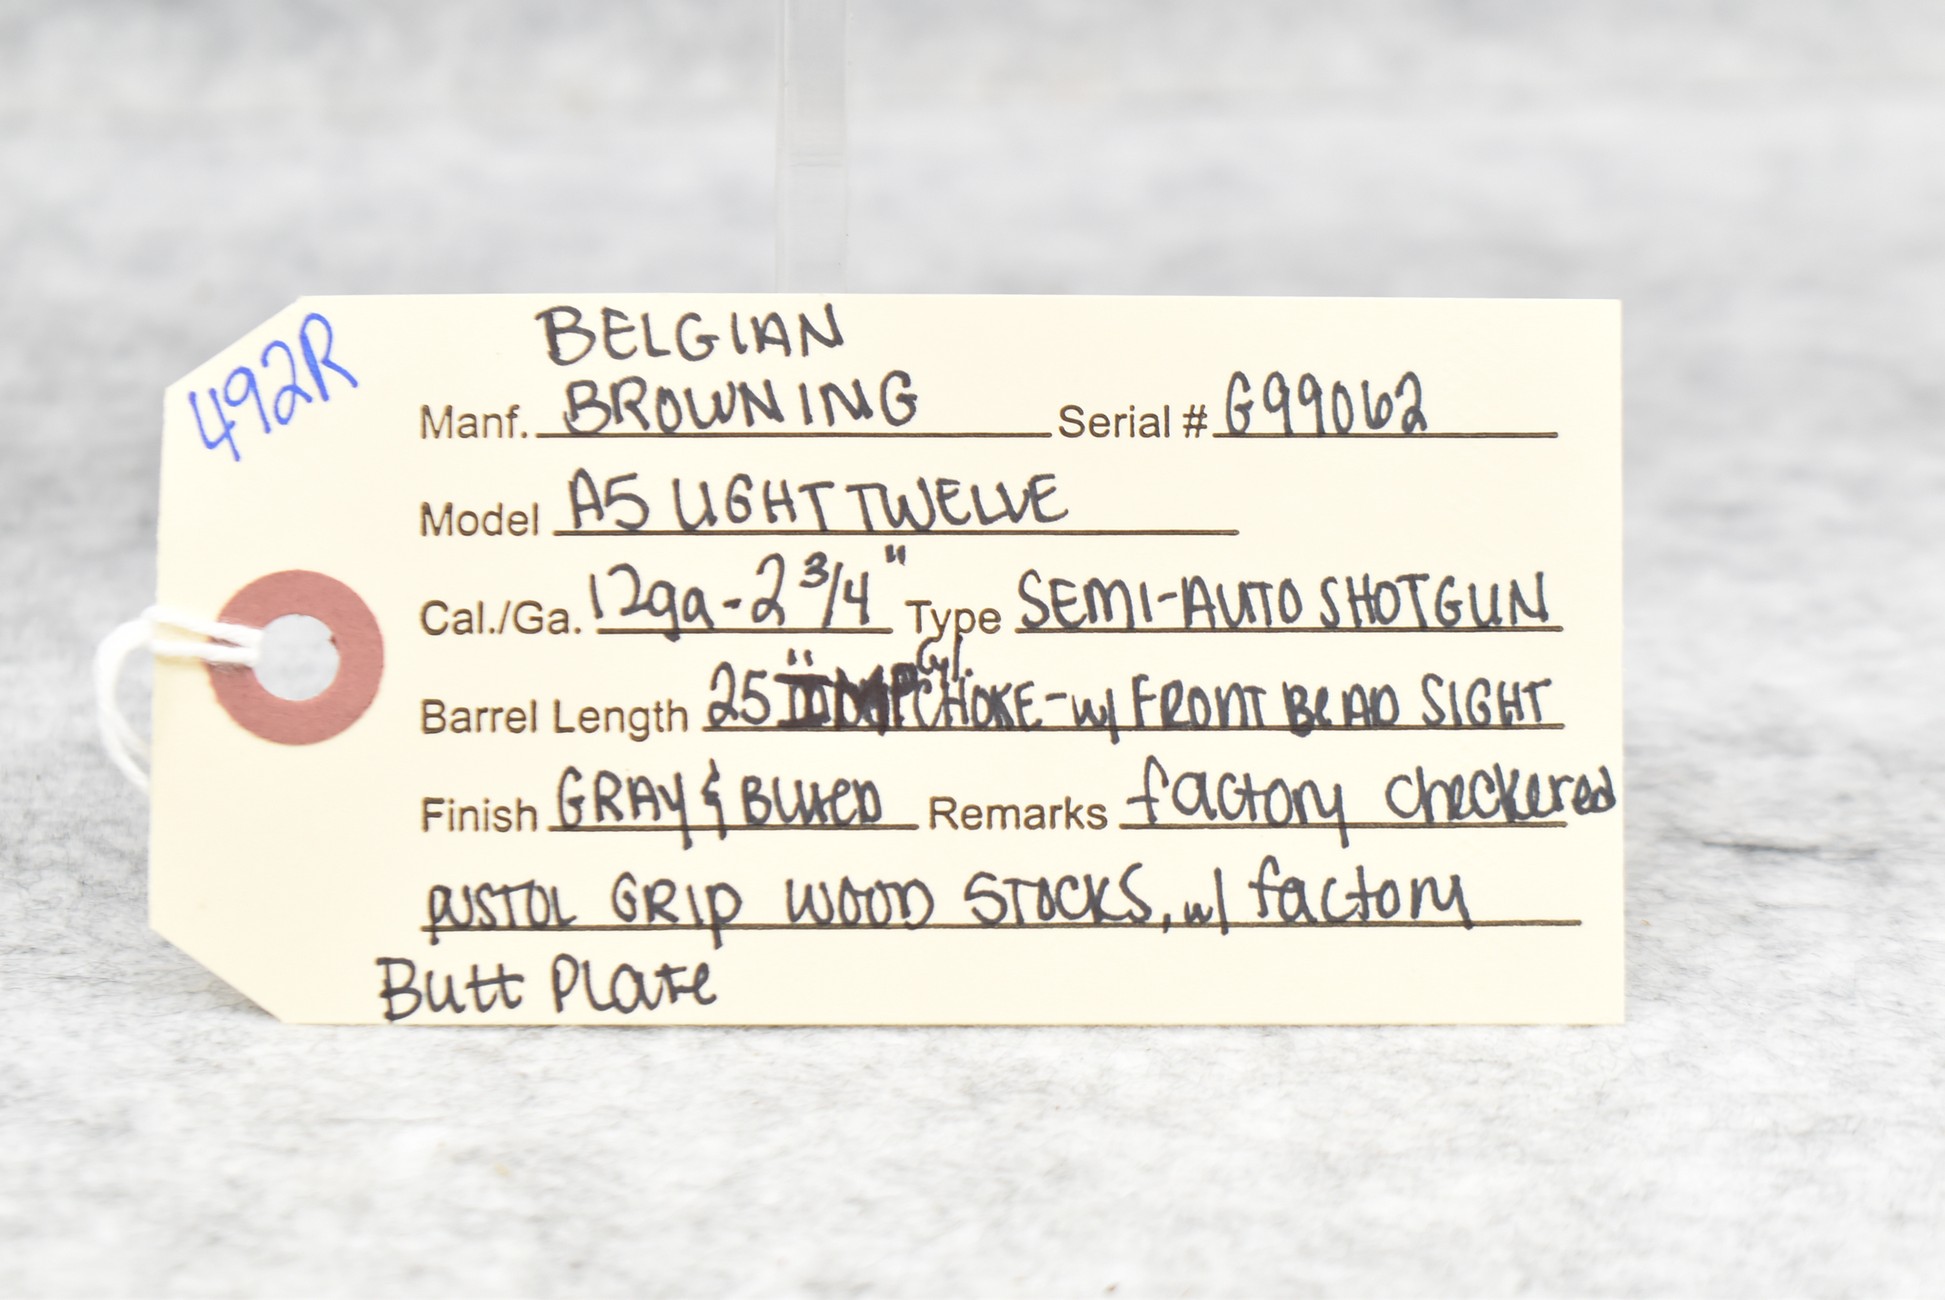 492R
BELGIAN
Manf. BROWNING Serial # G99062
Model A5 LIGHT TWELVE
Cal./Ga. 12ga-2 3/4" Type SEMI-AUTO SHOTGUN
Cyl.
Barrel Length 25" IMP CHOKE-w/ FRONT BEAD SIGHT
Finish GRAY & BLUED Remarks factory checkered
PISTOL GRIP WOOD STOCKS, w/ factory
Butt Plate